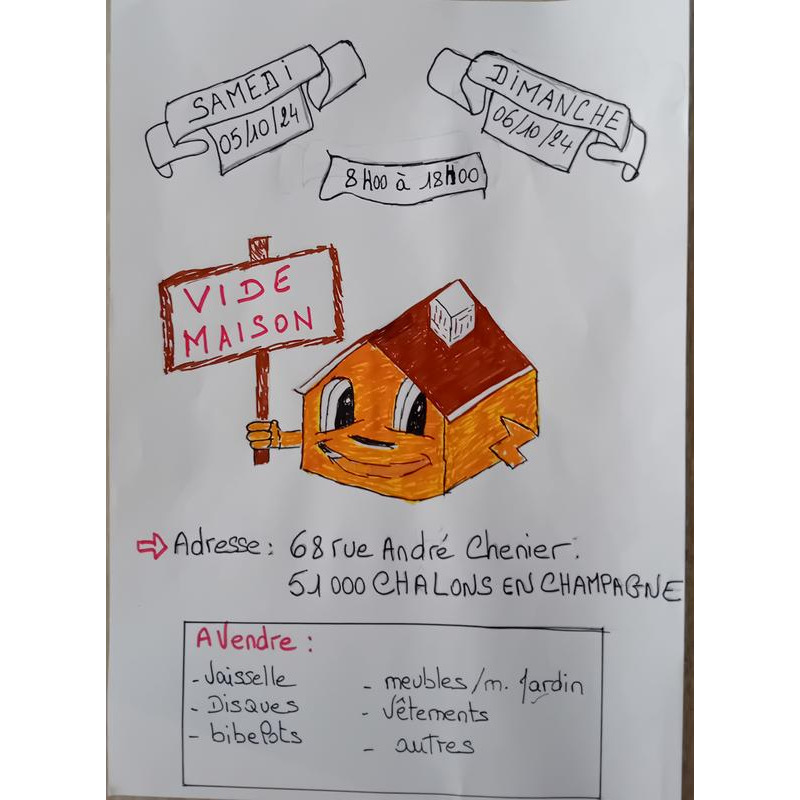 SAMEDI
05/10/24
DIMANCHE
06/10/24
8H00 à 18H00
VIDE
MAISON
⇨ Adresse : 68 rue André Chenier.
51 000 CHALONS EN CHAMPAGNE
A Vendre :
- Vaisselle
- Disques
- bibelots
- meubles/m. Jardin
- Vêtements
- autres